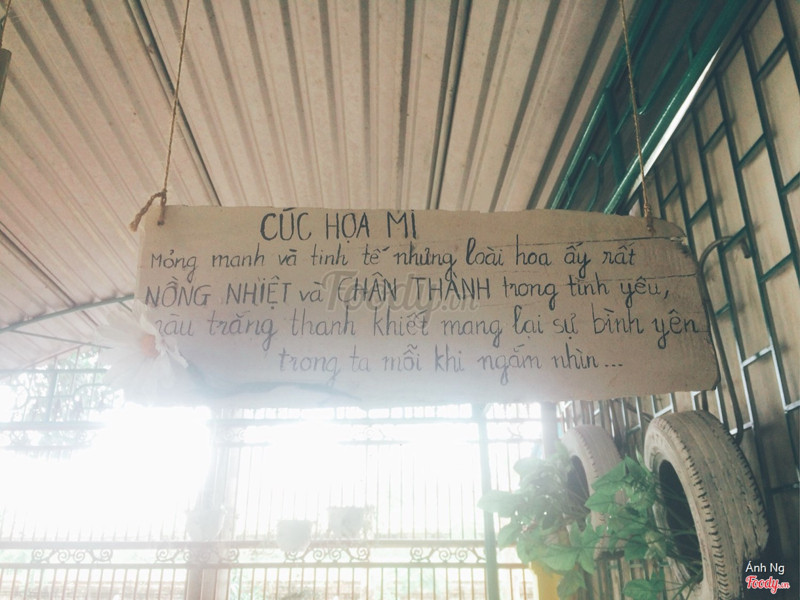 CÚC HỌA MI
Mỏng manh và tinh tế nhưng loài hoa ấy rất
NỒNG NHIỆT và CHÂN THÀNH trong tình yêu,
màu trắng thanh khiết mang lại sự bình yên
trong ta mỗi khi ngắm nhìn...
Foody.vn
Ánh Ng
Foody.vn